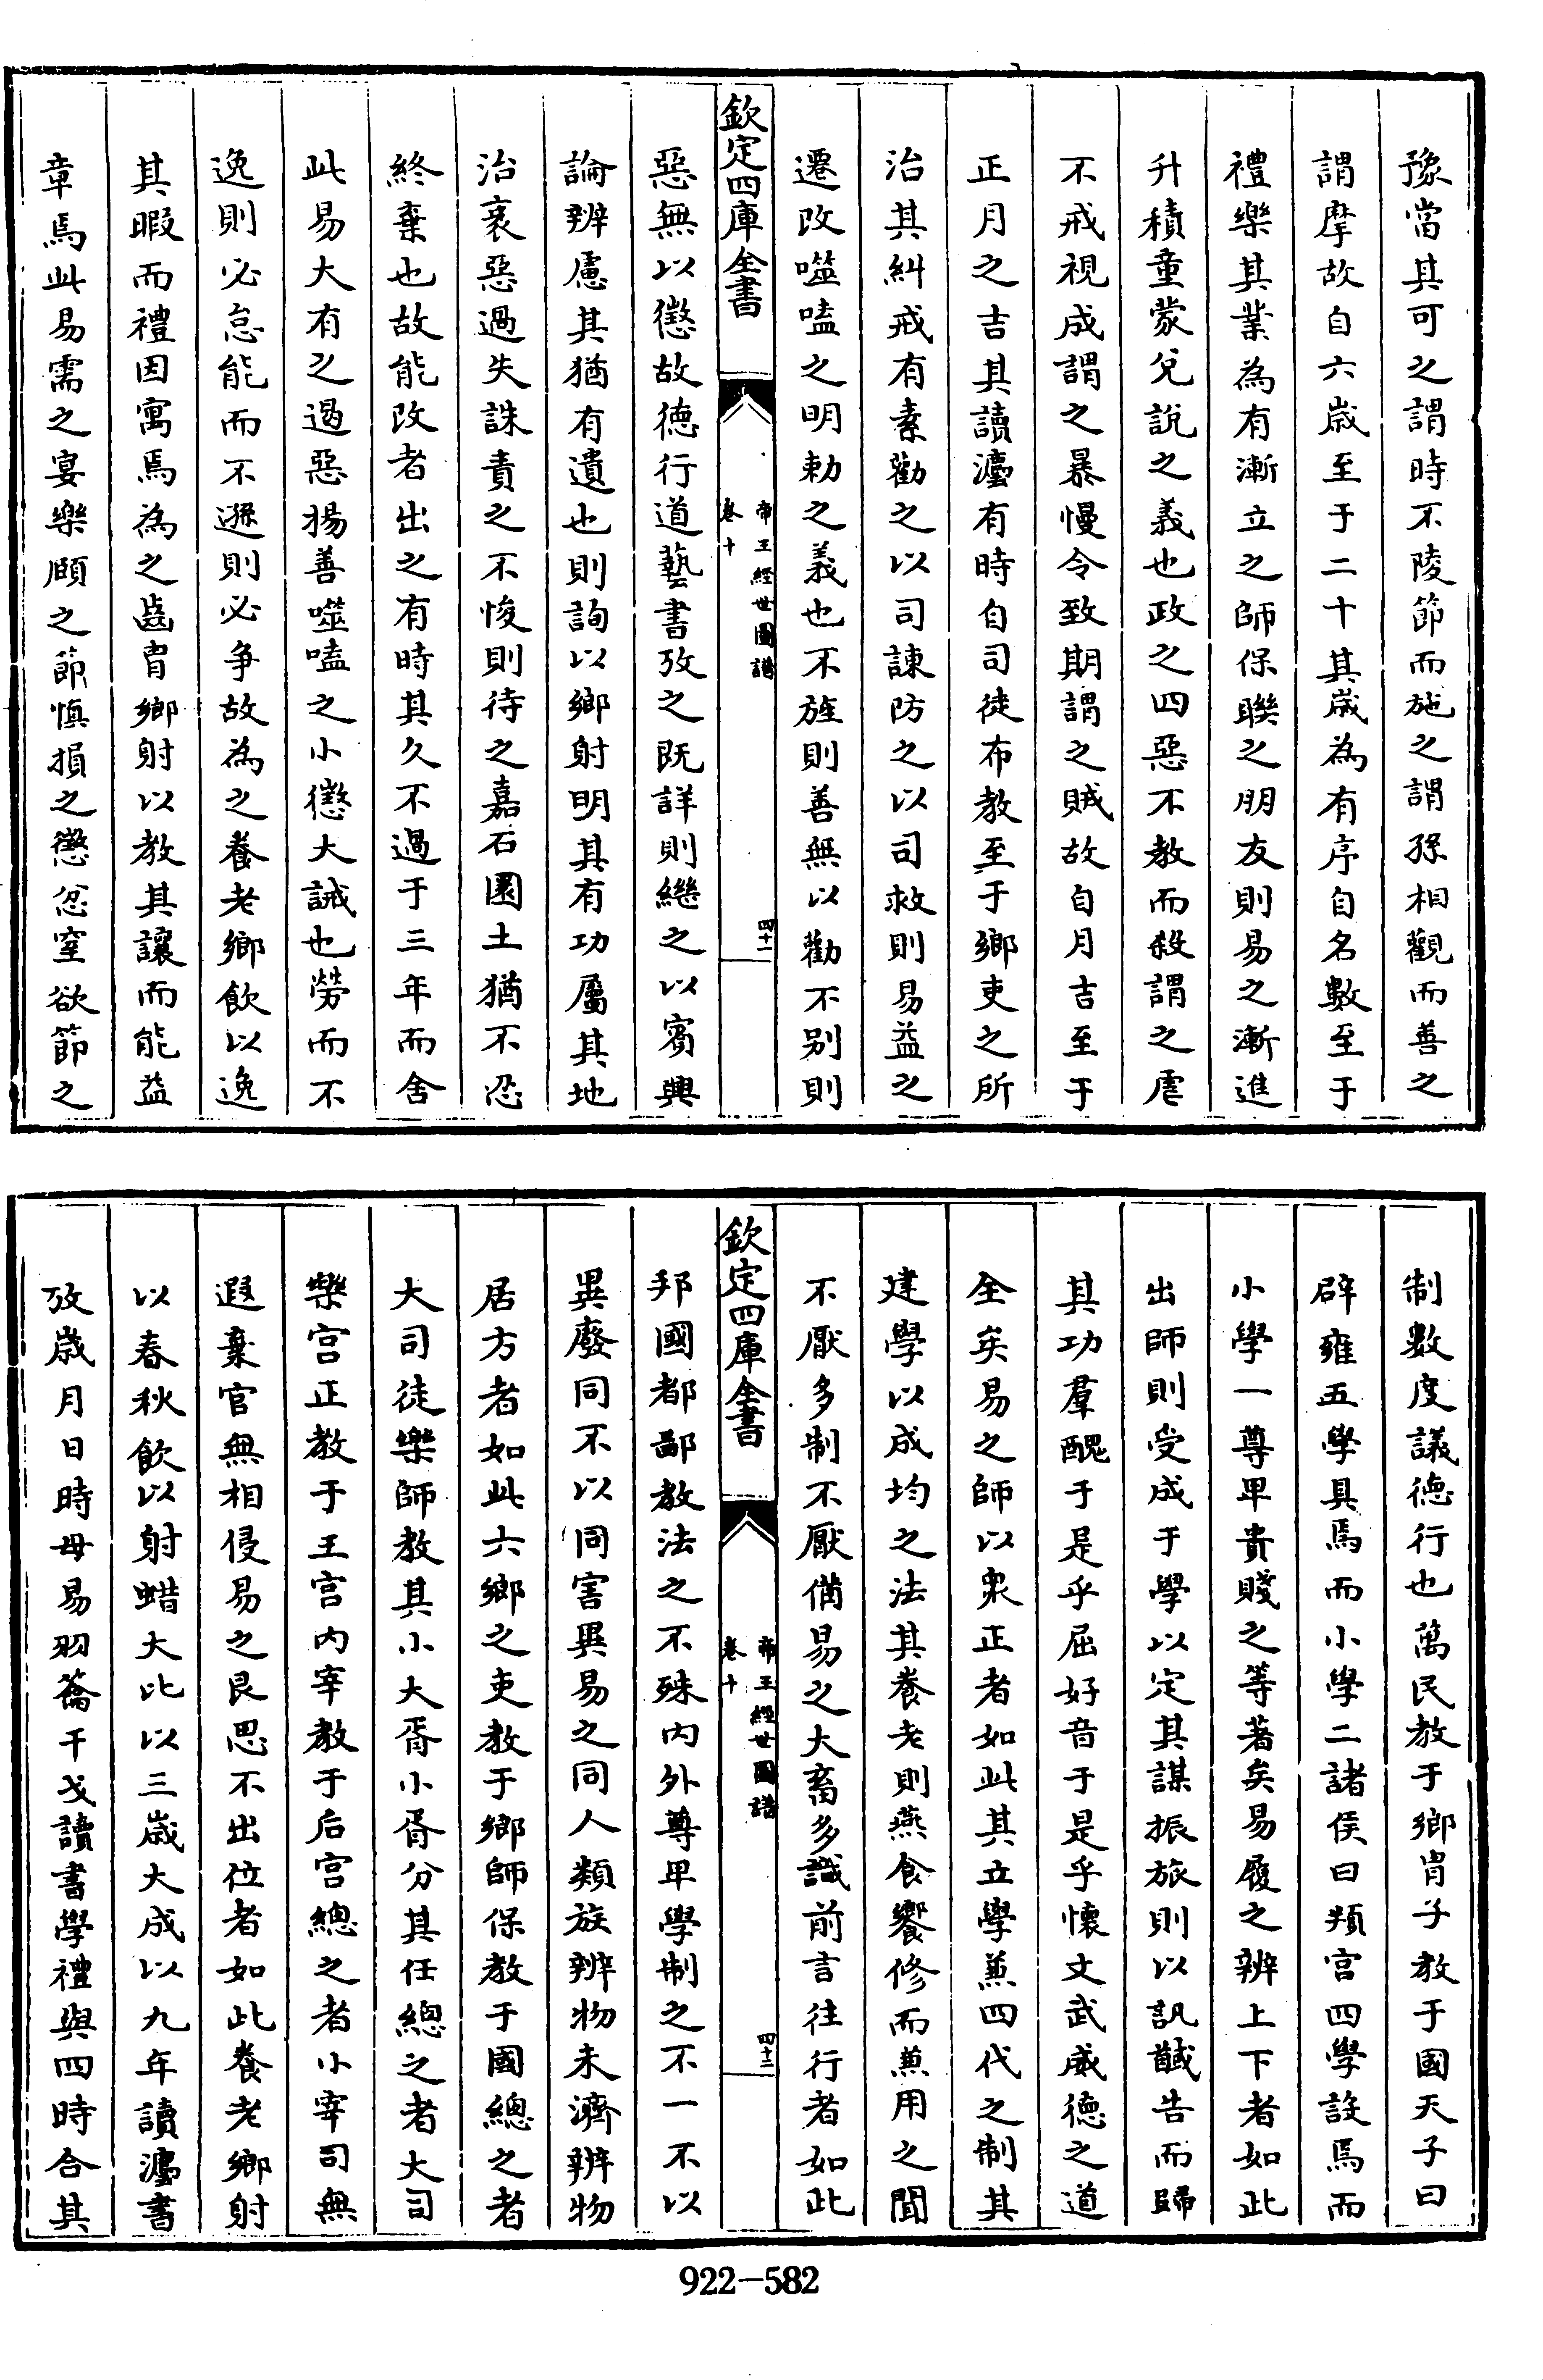 豫當其可之謂時不陵節而施之謂孫相觀而善之
謂摩故自六歳至于二十其歳為有序自名數至于
禮樂其業為有漸立之師保聨之朋友則易之漸進
升積童蒙兌說之義也政之四惡不教而殺謂之虐
不戒視成謂之暴慢令致期謂之賊故自月吉至于
正月之吉其讀灋有時自司徒布教至于鄉吏之所
治其糾戒有素勸之以司諫防之以司救則易益之
遷改噬嗑之明勅之義也不旌則善無以勸不别則
欽定四庫全書
帝王經世圖譜
卷十
四十一
惡無以懲故徳行道藝書攷之既詳則繼之以賓興
論辨慮其猶有遺也則詢以鄉射明其有功屬其地
治衺惡過失誅責之不悛則待之嘉石圜土猶不忍
終棄也故能改者出之有時其久不過于三年而舍
此易大有之遏惡揚善噬嗑之小懲大誡也勞而不
逸則必怠能而不遜則必争故為之養老鄉飲以逸
其暇而禮因寓焉為之齒胄鄉射以教其讓而能益
章焉此易需之宴樂頤之節慎損之懲忿窒欲節之
制數度議徳行也萬民教于鄉胄子教于國天子曰
辟雍五學具焉而小學二諸侯曰頖宫四學設焉而
小學一尊卑貴賤之等著矣易履之辨上下者如此
出師則受成于學以定其謀振旅則以訊馘告而歸
其功羣醜于是乎屈好音于是乎懷文武威徳之道
全矣易之師以衆正者如此其立學兼四代之制其
建學以成均之法其養老則燕食饗修而兼用之聞
不厭多制不厭備易之大畜多識前言往行者如此
欽定四庫全書
帝王經世圖譜
卷十
四十二
邦國都鄙教法之不殊内外尊卑學制之不一不以
異廢同不以同害異易之同人類族辨物未濟辨物
居方者如此六鄉之吏教于鄉師保教于國總之者
大司徒樂師教其小大胥小胥分其任總之者大司
樂宫正教于王宫内宰教于后宫總之者小宰司無
遐棄官無相侵易之艮思不出位者如此養老鄉射
以春秋飲以射蜡大比以三歳大成以九年讀灋書
攷歳月日時毋易羽籥干戈讀書學禮與四時合其
922—582